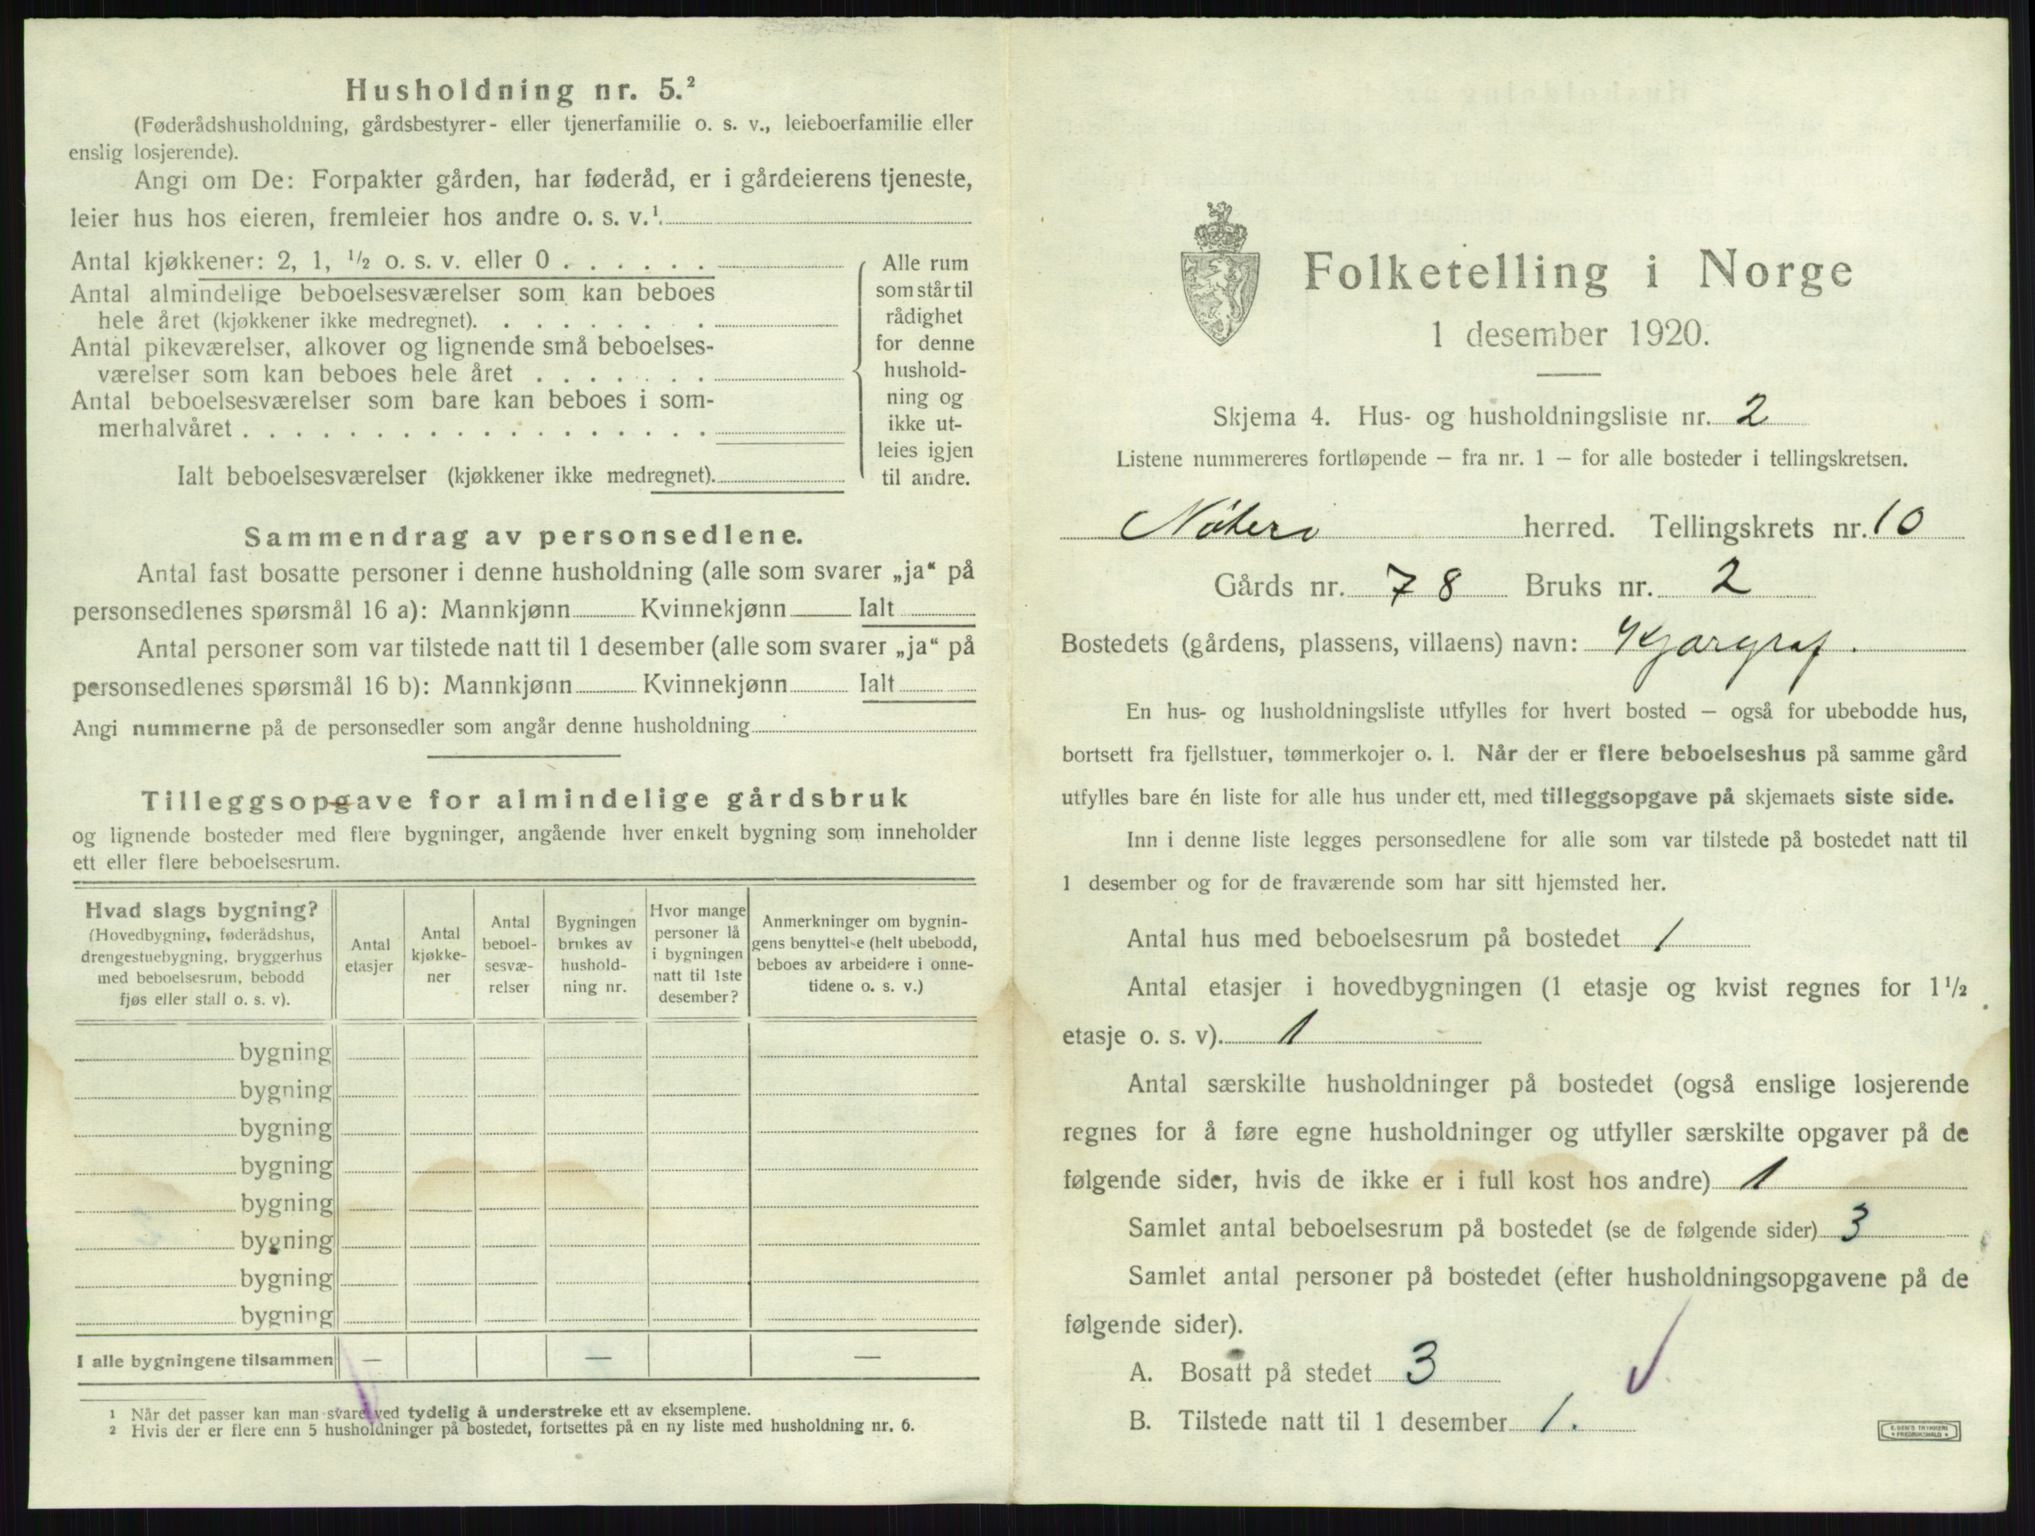 Husholdning nr. 5.²
(Føderådshusholdning, gårdsbestyrer- eller tjenerfamilie o. s. v., leieboerfamilie eller
enslig losjerende).
Angi om De: Forpakter gården, har føderåd, er i gårdeierens tjeneste,
leier hus hos eieren, fremleier hos andre o. s. v.¹
Antal kjøkkener: 2, 1, ½ o. s. v. eller 0
Antal almindelige beboelsesværelser som kan beboes
hele året (kjøkkener ikke medregnet).
Antal pikeværelser, alkover og lignende små beboelses-
værelser som kan beboes hele året
Antal beboelsesværelser som bare kan beboes i som-
merhalvåret
Ialt beboelsesværelser (kjøkkener ikke medregnet).
Alle rum
som står til
rådighet
for denne
hushold-
ning og
ikke ut-
leies igjen
til andre.
Sammendrag av personsedlene.
Antal fast bosatte personer i denne husholdning (alle som svarer „ja“ på
personsedlenes spørsmål 16 a): Mannkjønn Kvinnekjønn Ialt
Antal personer som var tilstede natt til 1 desember (alle som svarer „ja“ på
personsedlenes spørsmål 16 b): Mannkjønn Kvinnekjønn Ialt
Angi nummerne på de personsedler som angår denne husholdning
Tilleggsopgave for almindelige gårdsbruk
og lignende bosteder med flere bygninger, angående hver enkelt bygning som inneholder
ett eller flere beboelsesrum.
Hvad slags bygning?
(Hovedbygning, føderådshus,
drengestuebygning, bryggerhus
med beboelsesrum, bebodd
fjøs eller stall o. s. v).
Antal
etasjer
Antal
kjøkke-
ner
Antal
beboel-
sesvæ-
relser
Bygningen
brukes av
hushold-
ning nr.
Hvor mange
personer lå
i bygningen
natt til 1ste
desember?
Anmerkninger om bygnin-
gens benyttelse (helt ubebodd,
beboes av arbeidere i onne-
tidene o. s. v.)
bygning
bygning
bygning
bygning
bygning
bygning
bygning
bygning
I alle bygningene tilsammen — — —
¹ Når det passer kan man svare ved tydelig å understreke ett av eksemplene.
² Hvis der er flere enn 5 husholdninger på bostedet, fortsettes på en ny liste med husholdning nr. 6.
Folketelling i Norge
1 desember 1920.
Skjema 4. Hus- og husholdningsliste nr. 2
Listene nummereres fortløpende — fra nr. 1 — for alle bosteder i tellingskretsen.
Nøterø herred. Tellingskrets nr. 10
Gårds nr. 78 Bruks nr. 2
Bostedets (gårdens, plassens, villaens) navn:
En hus- og husholdningsliste utfylles for hvert bosted — også for ubebodde hus,
bortsett fra fjellstuer, tømmerkojer o. l. Når der er flere beboelseshus på samme gård
utfylles bare én liste for alle hus under ett, med tilleggsopgave på skjemaets siste side.
Inn i denne liste legges personsedlene for alle som var tilstede på bostedet natt til
1 desember og for de fraværende som har sitt hjemsted her.
Antal hus med beboelsesrum på bostedet 1
Antal etasjer i hovedbygningen (1 etasje og kvist regnes for 1½
etasje o. s. v). 1
Antal særskilte husholdninger på bostedet (også enslige losjerende
regnes for å føre egne husholdninger og utfyller særskilte opgaver på de
følgende sider, hvis de ikke er i full kost hos andre) 1
Samlet antal beboelsesrum på bostedet (se de følgende sider) 3
Samlet antal personer på bostedet (efter husholdningsopgavene på de
følgende sider).
A. Bosatt på stedet 3
B. Tilstede natt til 1 desember 1.